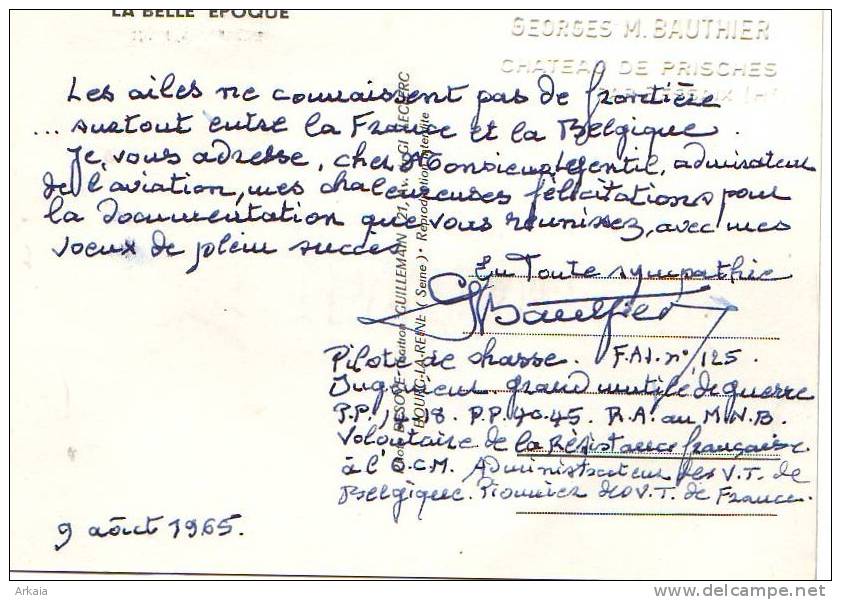 LA BELLE EPOQUE
GEORGES M. BAUTHIER
CHATEAU DE PRISCHES
Les ailes ne connaissent pas de frontière
... surtout entre la France et la Belgique.
Je vous adresse, cher Monsieur Gentil, admirateur
de l'aviation, mes chaleureuses félicitations pour
la documentation que vous réunissez, avec mes
voeux de plein succès.
En Toute sympathie
GBauthier
Pilote de chasse. F.A.I. n° 125.
Ingénieur grand mutilé de guerre
P.P. 14-18. P.P. 40-45. R.A. au M.N.B.
Volontaire de la Résistance française
à l'O.C.M. Administrateur des V.T. de
Belgique. Pionnier des V.T. de France.
9 août 1965.
GUILLEMAIN 21, av. du Gl LECLERC
BOURG-LA-REINE (Seine) - Reproduction interdite
Arkaia
www.delcampe.net